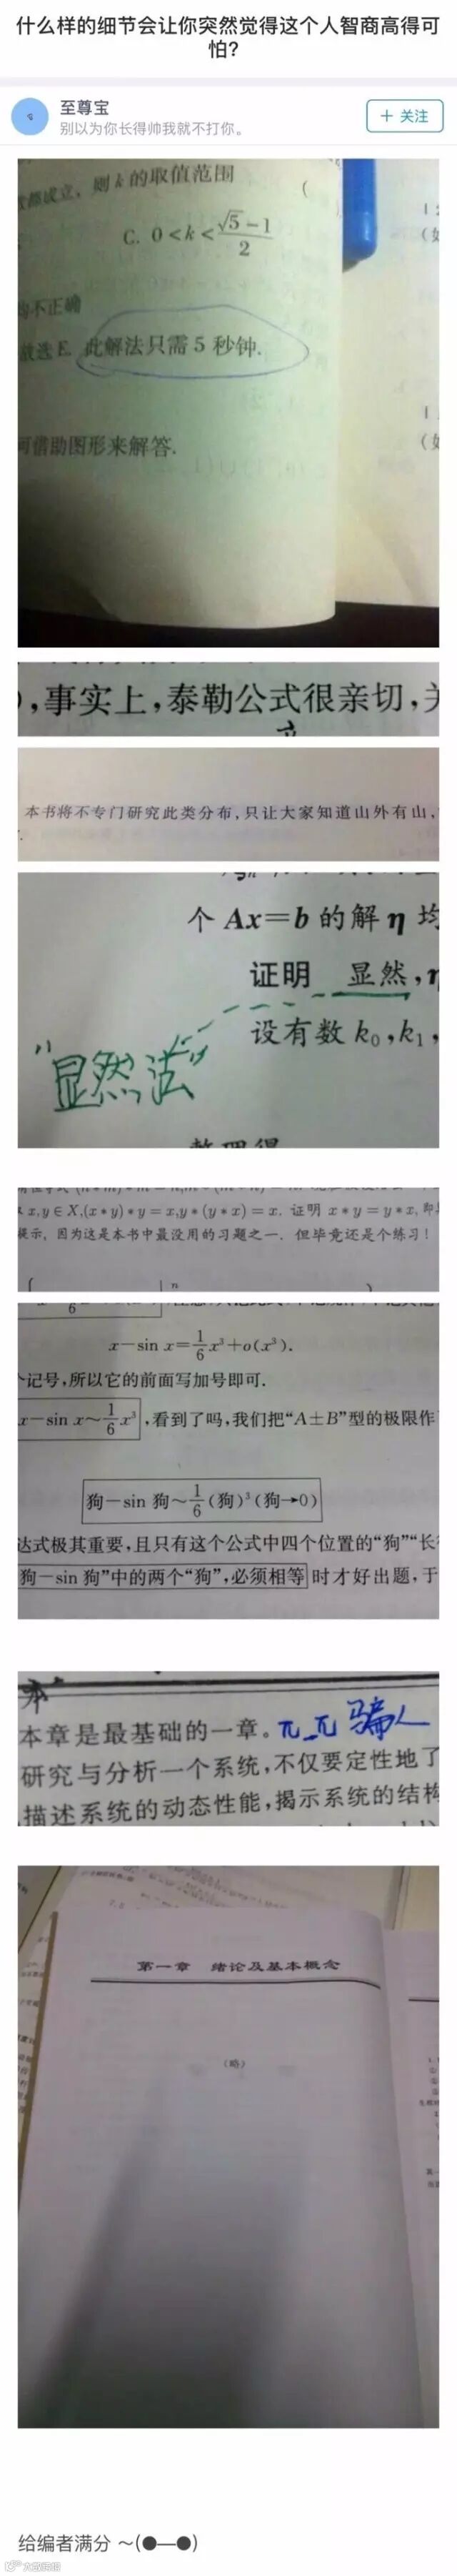 什么样的细节会让你突然觉得这个人智商高得可
怕?
至尊宝
+ 关注
别以为你长得帅我就不打你。
都成立, 则 k 的取值范围
(
C. 0<k<(√5−1)/2
均不正确
故选 E. 此解法只需 5 秒钟.
可借助图形来解答.
),事实上,泰勒公式很亲切,并
本书将不专门研究此类分布,只让大家知道山外有山,
个 Ax=b 的解 η 均
证明 显然,η
设有数 k₀,k₁,
"显然法"
整理得
x,y∈X,(x*y)*y=x,y*(y*x)=x. 证明 x*y=y*x, 即
提示, 因为这是本书中最没用的习题之一. 但毕竟还是个练习!
x−sin x=1/6x³+o(x³).
个记号,所以它的前面写加号即可.
x−sin x~1/6x³,看到了吗,我们把“A±B”型的极限作
狗−sin 狗~1/6(狗)³(狗→0)
达式极其重要,且只有这个公式中四个位置的“狗”“长
狗−sin 狗”中的两个“狗”,必须相等 时才好出题,于
本章是最基础的一章。π_π 骗人
研究与分析一个系统,不仅要定性地了
描述系统的动态性能,揭示系统的结构
第一章 绪论及基本概念
(略)
给编者满分 ～(●—●)